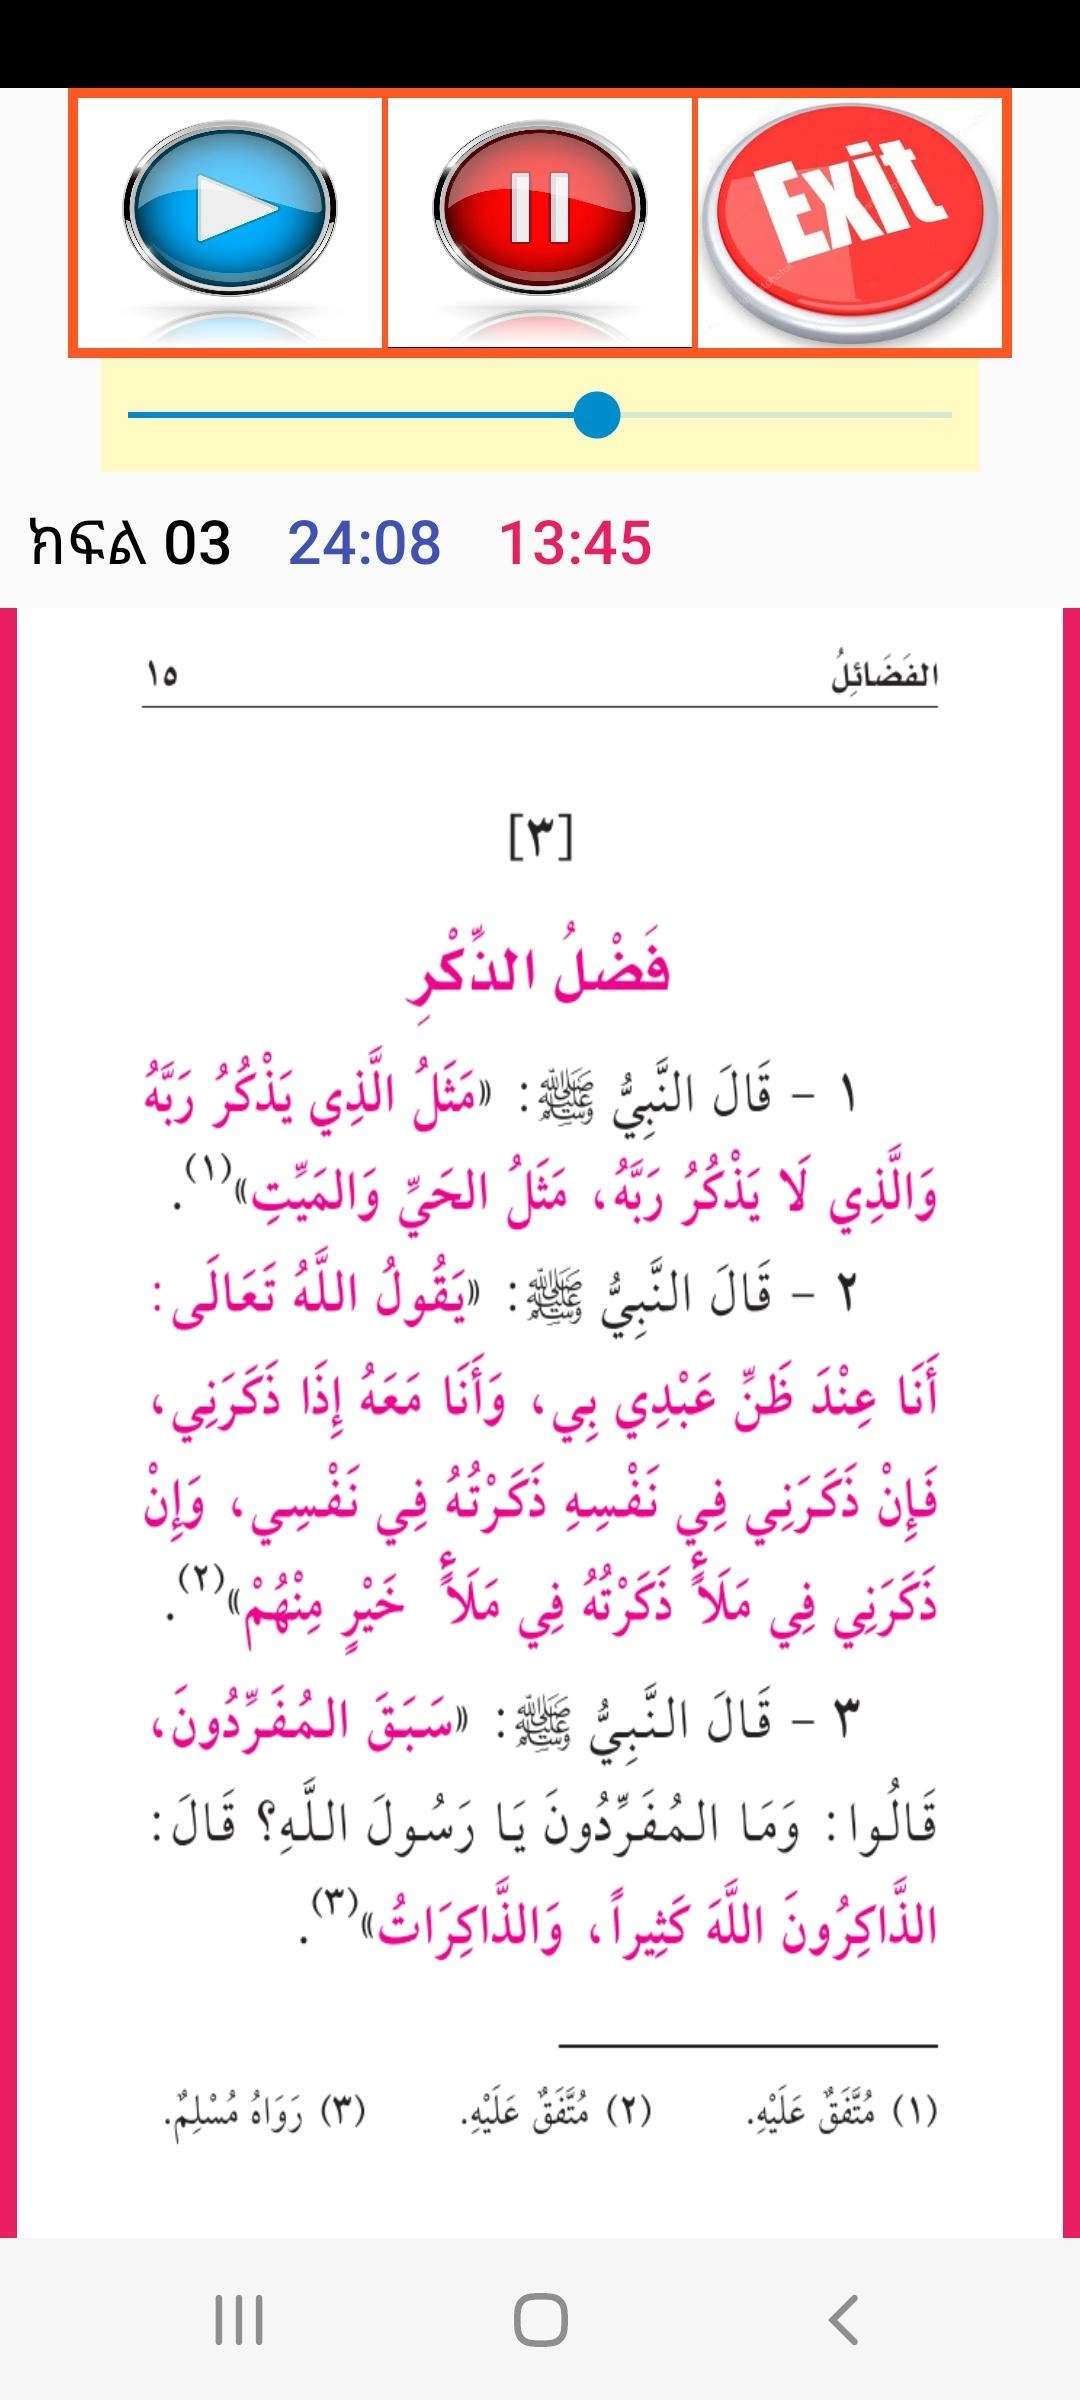 Exit
ክፍል 03 24:08 13:45
الفَضَائِلُ ١٥
[٣]
فَضْلُ الذِّكْرِ
١ - قَالَ النَّبِيُّ ﷺ: «مَثَلُ الَّذِي يَذْكُرُ رَبَّهُ
وَالَّذِي لَا يَذْكُرُ رَبَّهُ، مَثَلُ الحَيِّ وَالمَيِّتِ»(١).
٢ - قَالَ النَّبِيُّ ﷺ: «يَقُولُ اللَّهُ تَعَالَى:
أَنَا عِنْدَ ظَنِّ عَبْدِي بِي، وَأَنَا مَعَهُ إِذَا ذَكَرَنِي،
فَإِنْ ذَكَرَنِي فِي نَفْسِهِ ذَكَرْتُهُ فِي نَفْسِي، وَإِنْ
ذَكَرَنِي فِي مَلَأٍ ذَكَرْتُهُ فِي مَلَأٍ خَيْرٍ مِنْهُمْ»(٢).
٣ - قَالَ النَّبِيُّ ﷺ: «سَبَقَ المُفَرِّدُونَ،
قَالُوا: وَمَا المُفَرِّدُونَ يَا رَسُولَ اللَّهِ؟ قَالَ:
الذَّاكِرُونَ اللَّهَ كَثِيراً، وَالذَّاكِرَاتُ»(٣).
(١) مُتَّفَقٌ عَلَيْهِ. (٢) مُتَّفَقٌ عَلَيْهِ. (٣) رَوَاهُ مُسْلِمٌ.